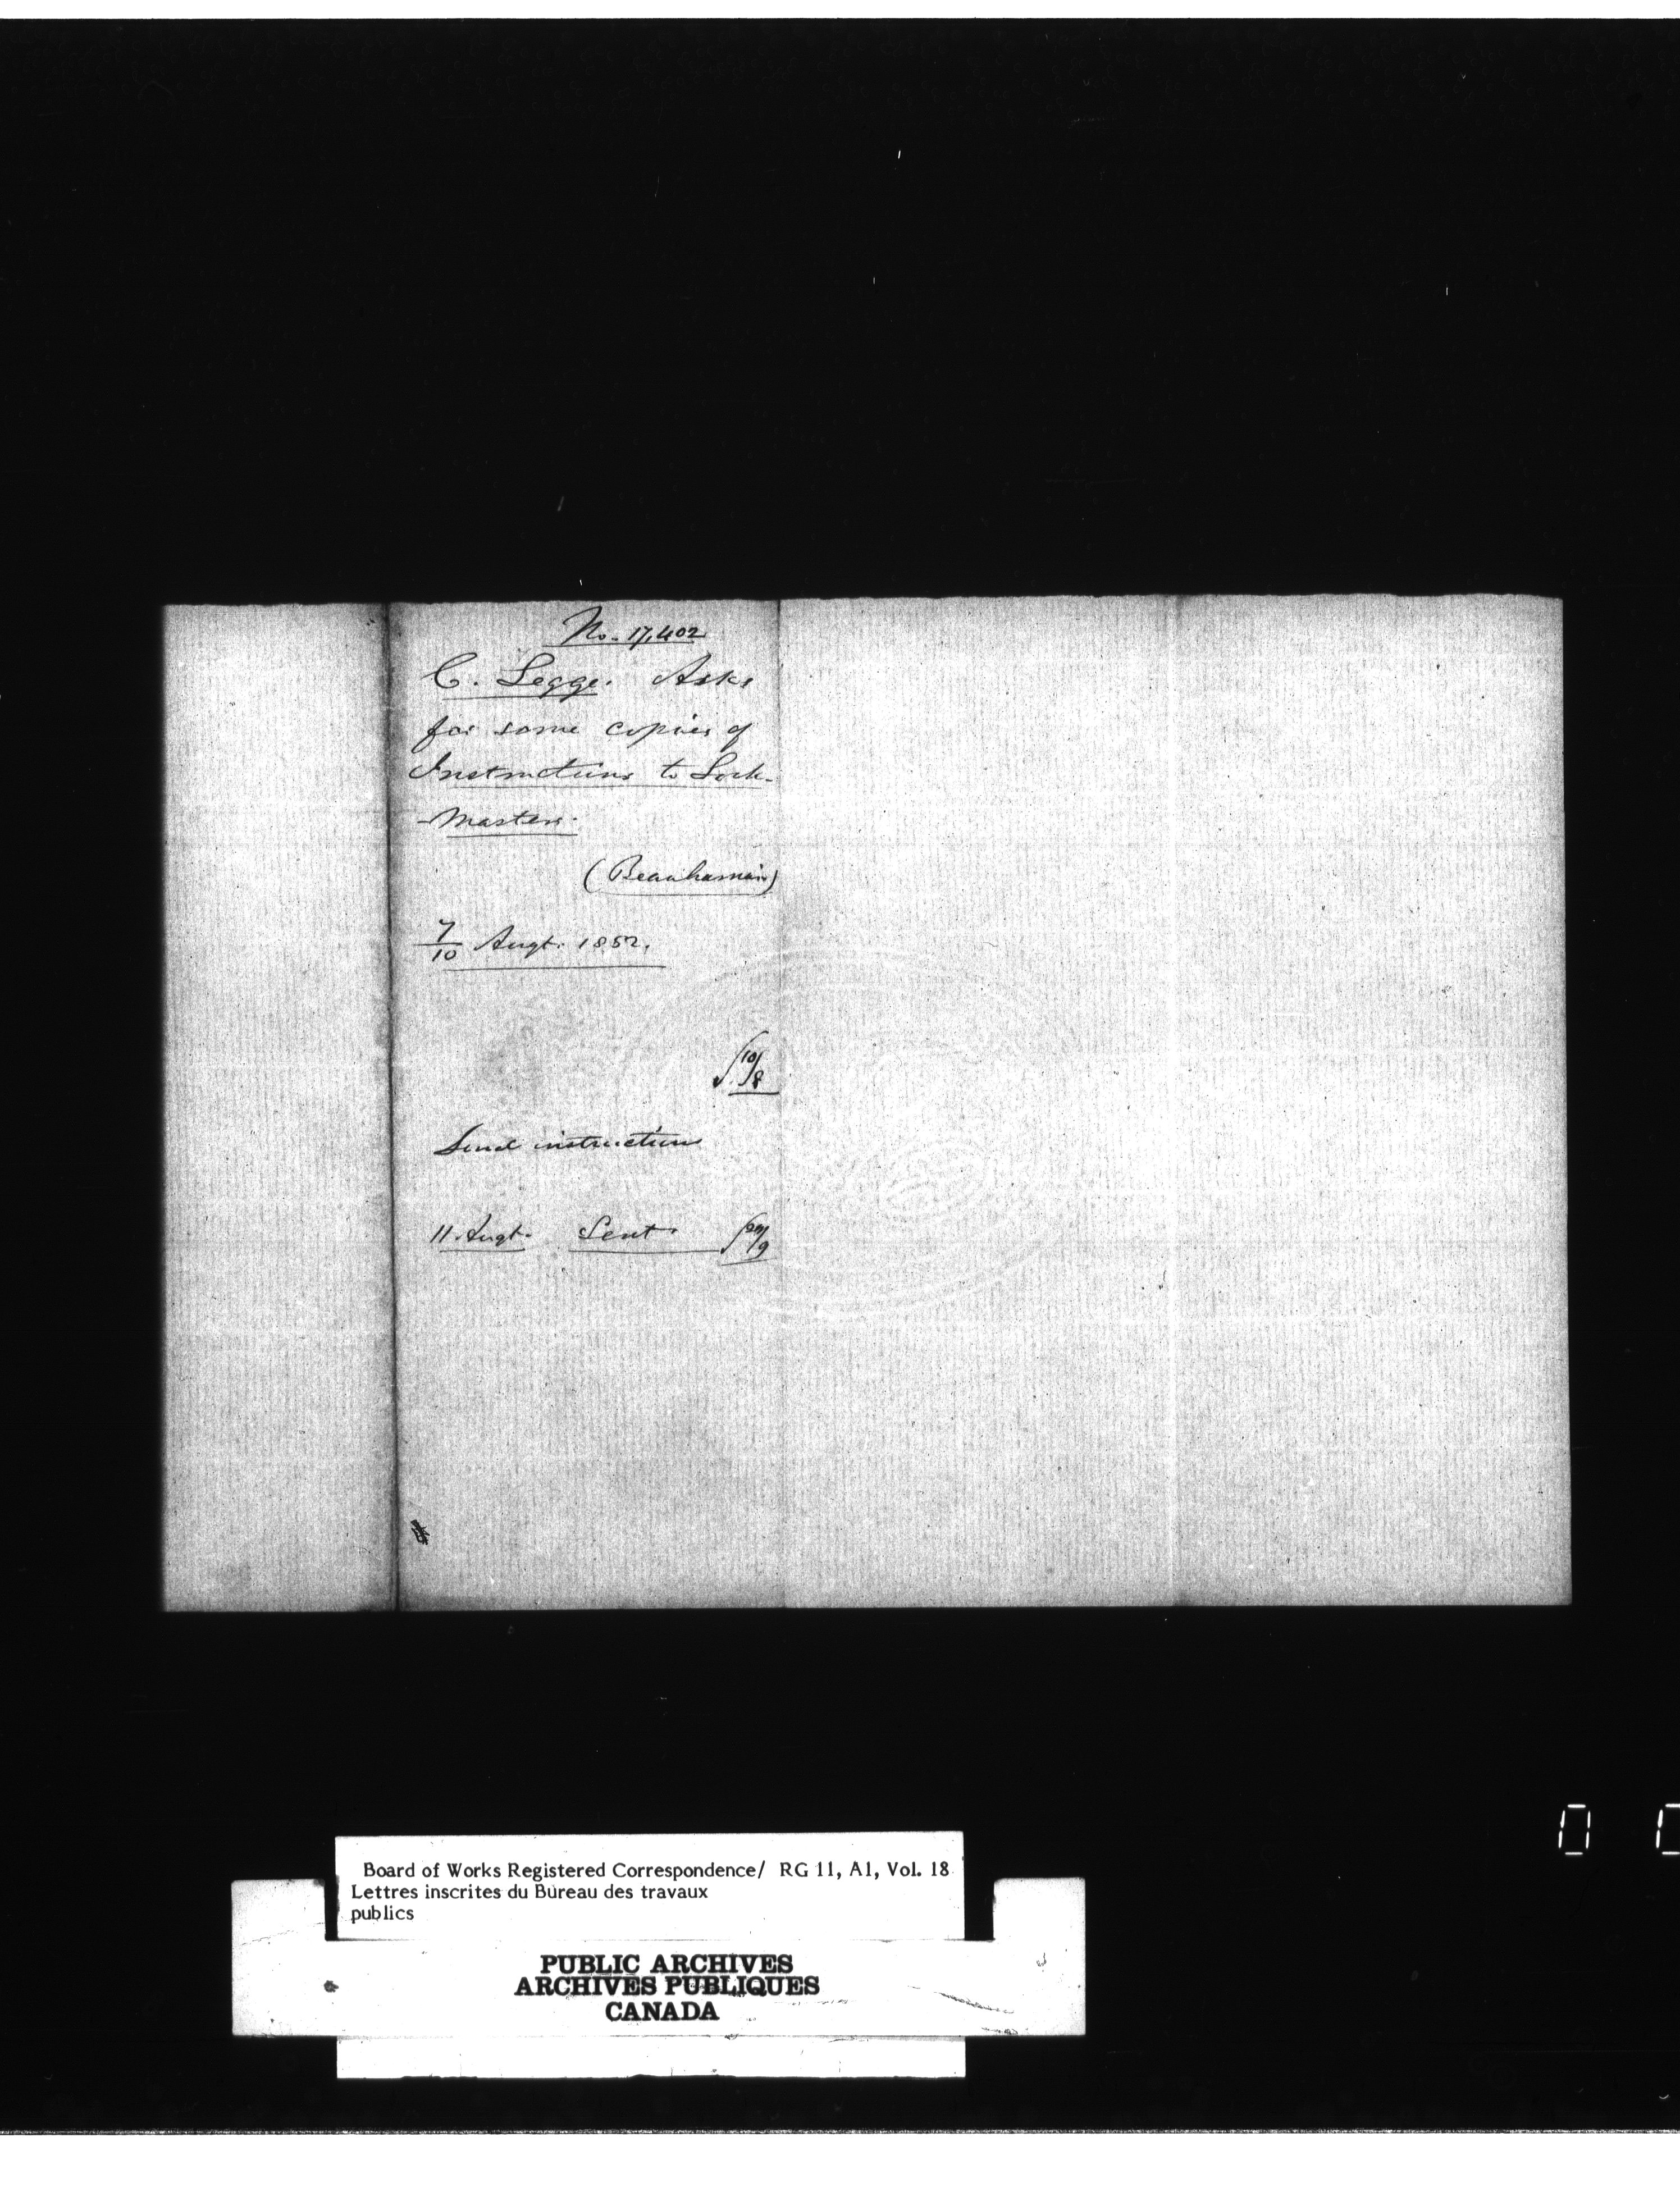 No. 17,402
C. Legge. Asks
for some copies of
Instructions to Lock-
-Masters.
(Beauharnois)
7/10 Augt. 1852.
10/8
Send instructions
11. Augt. Sent.
Board of Works Registered Correspondence/ RG 11, A1, Vol. 18
Lettres inscrites du Bureau des travaux
publics
PUBLIC ARCHIVES
ARCHIVES PUBLIQUES
CANADA
0